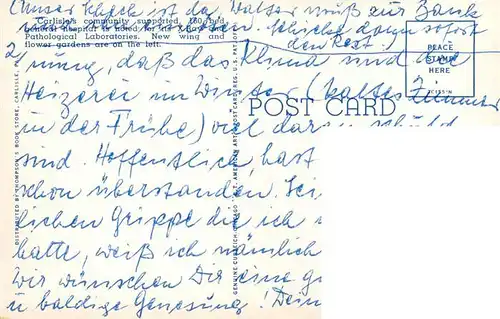 (Unser Scheck ist da, Walter muß zur Bank
schicke dann sofort
den Rest.)
Carlisle's community supported 180 bed
General Hospital is noted for its X-Ray and
Pathological Laboratories. New wing and
flower gardens are on the left.
PLACE
STAMP
HERE
2/ nung, daß das Klima und die
Heizerei im Winter (kaltes Zimmer
POST CARD
in der Frühe) viel daran schuld
sind. Hoffentlich hast
schon überstanden. Sei
lichen Grippe die ich
hatte, weiß ich nämlich
Wir wünschen Dir eine
u baldige Genesung! Dein
DISTRIBUTED BY THOMPSON'S BOOK STORE, CARLISLE,
GENUINE CURTEICH-CHICAGO "C.T. AMERICAN ART" POST CARD (REG. U.S. PAT. OFF.)